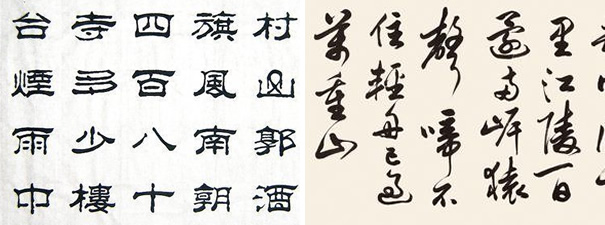 村山郭酒
旗風南朝
四百八十
寺多少樓
台煙雨中
里江陵一日
還兩岸猿
聲啼不
住輕舟已過
萬重山